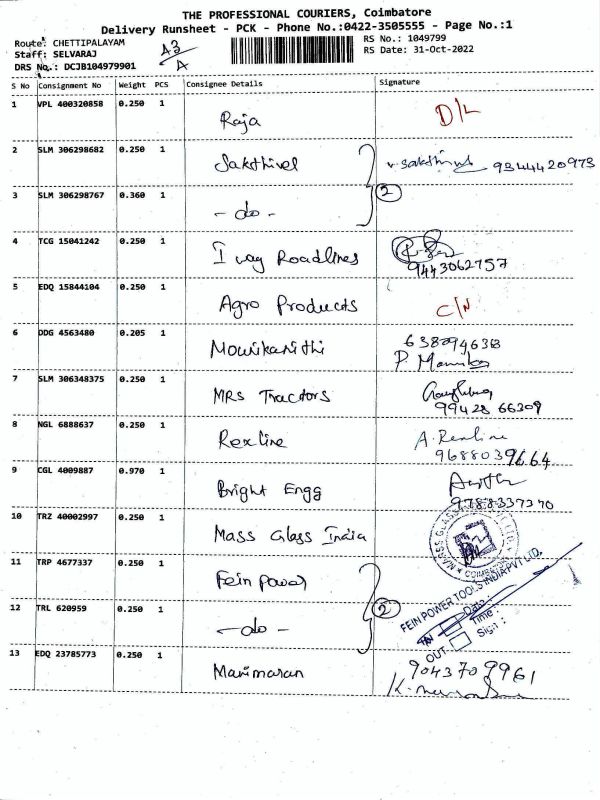 THE PROFESSIONAL COURIERS, Coimbatore
Delivery Runsheet - PCK - Phone No.:0422-3505555 - Page No.:1
Route: CHETTIPALAYAM
Staff: SELVARAJ
DRS No.: DCJB104979901
A3
A
RS No.: 1049799
RS Date: 31-Oct-2022
S No Consignment No Weight PCS Consignee Details Signature
1 VPL 400320858 0.250 1 Raja D/L
2 SLM 306298682 0.250 1 Sakthivel v. sakthivel 9344420973
3 SLM 306298767 0.360 1 - do - 2
4 TCG 15041242 0.250 1 I way Roadlines 9443062757
5 EDQ 15844104 0.250 1 Agro Products C/N
6 DDG 4563480 0.205 1 Mounikanithi
P.
7 SLM 306348375 0.250 1 MRS Tractors
99428 66309
8 NGL 6888637 0.250 1 Rexline A. Rexline
9688039664
9 CGL 4009887 0.970 1 Bright Engg
9788337370
10 TRZ 40002997 0.250 1 Mass Glass India
COIMBATORE
11 TRP 4677337 0.250 1 Fein power
FEIN POWER TOOLS INDIA PVT LTD.
IN Date:
Time:
OUT Sign:
12 TRL 620959 0.250 1 - do - 2
13 EDQ 23785773 0.250 1 Manimaran 9043709961
K.